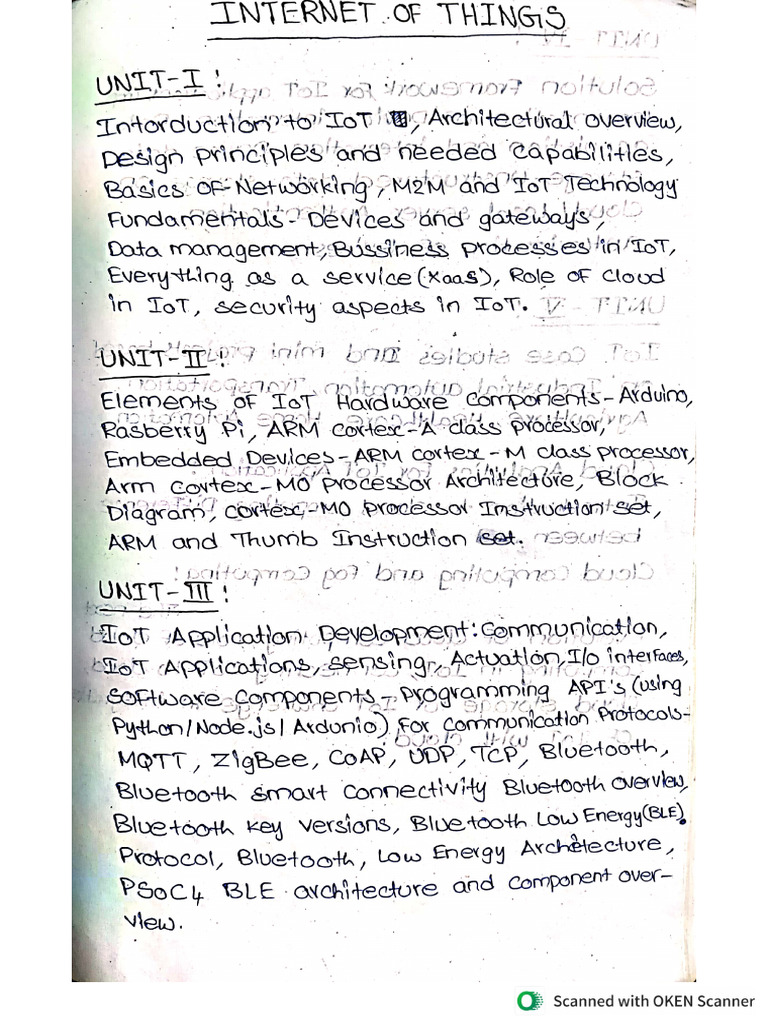 INTERNET OF THINGS
UNIT-I :
Intorduction to IoT , Architectural overview,
Design principles and needed capabilities,
Basics of Networking, M2M and IoT Technology
Fundamentals- Devices and gateways,
Data management, Bussiness processes in IoT,
Everything as a service (XaaS), Role of cloud
in IoT, security aspects in IoT.
UNIT-II :
Elements of IoT Hardware components- Arduino,
Rasberry Pi, ARM cortex-A class processor,
Embedded Devices-ARM cortex-M class processor,
Arm cortex-M0 Processor Architecture, Block
Diagram, cortex-M0 processor Instruction set,
ARM and Thumb Instruction set.
UNIT-III :
IoT Application Development: Communication,
IoT Applications, sensing, Actuation, I/o interfaces,
software components- programming API's (using
Python/Node.js/Ardunio) for communication Protocols-
MQTT, ZigBee, CoAP, UDP, TCP, Bluetooth,
Bluetooth smart connectivity Bluetooth overview,
Bluetooth key versions, Bluetooth Low Energy(BLE)
Protocol, Bluetooth, Low Energy Architecture,
PSoC4 BLE architecture and component over-
view.
Scanned with OKEN Scanner